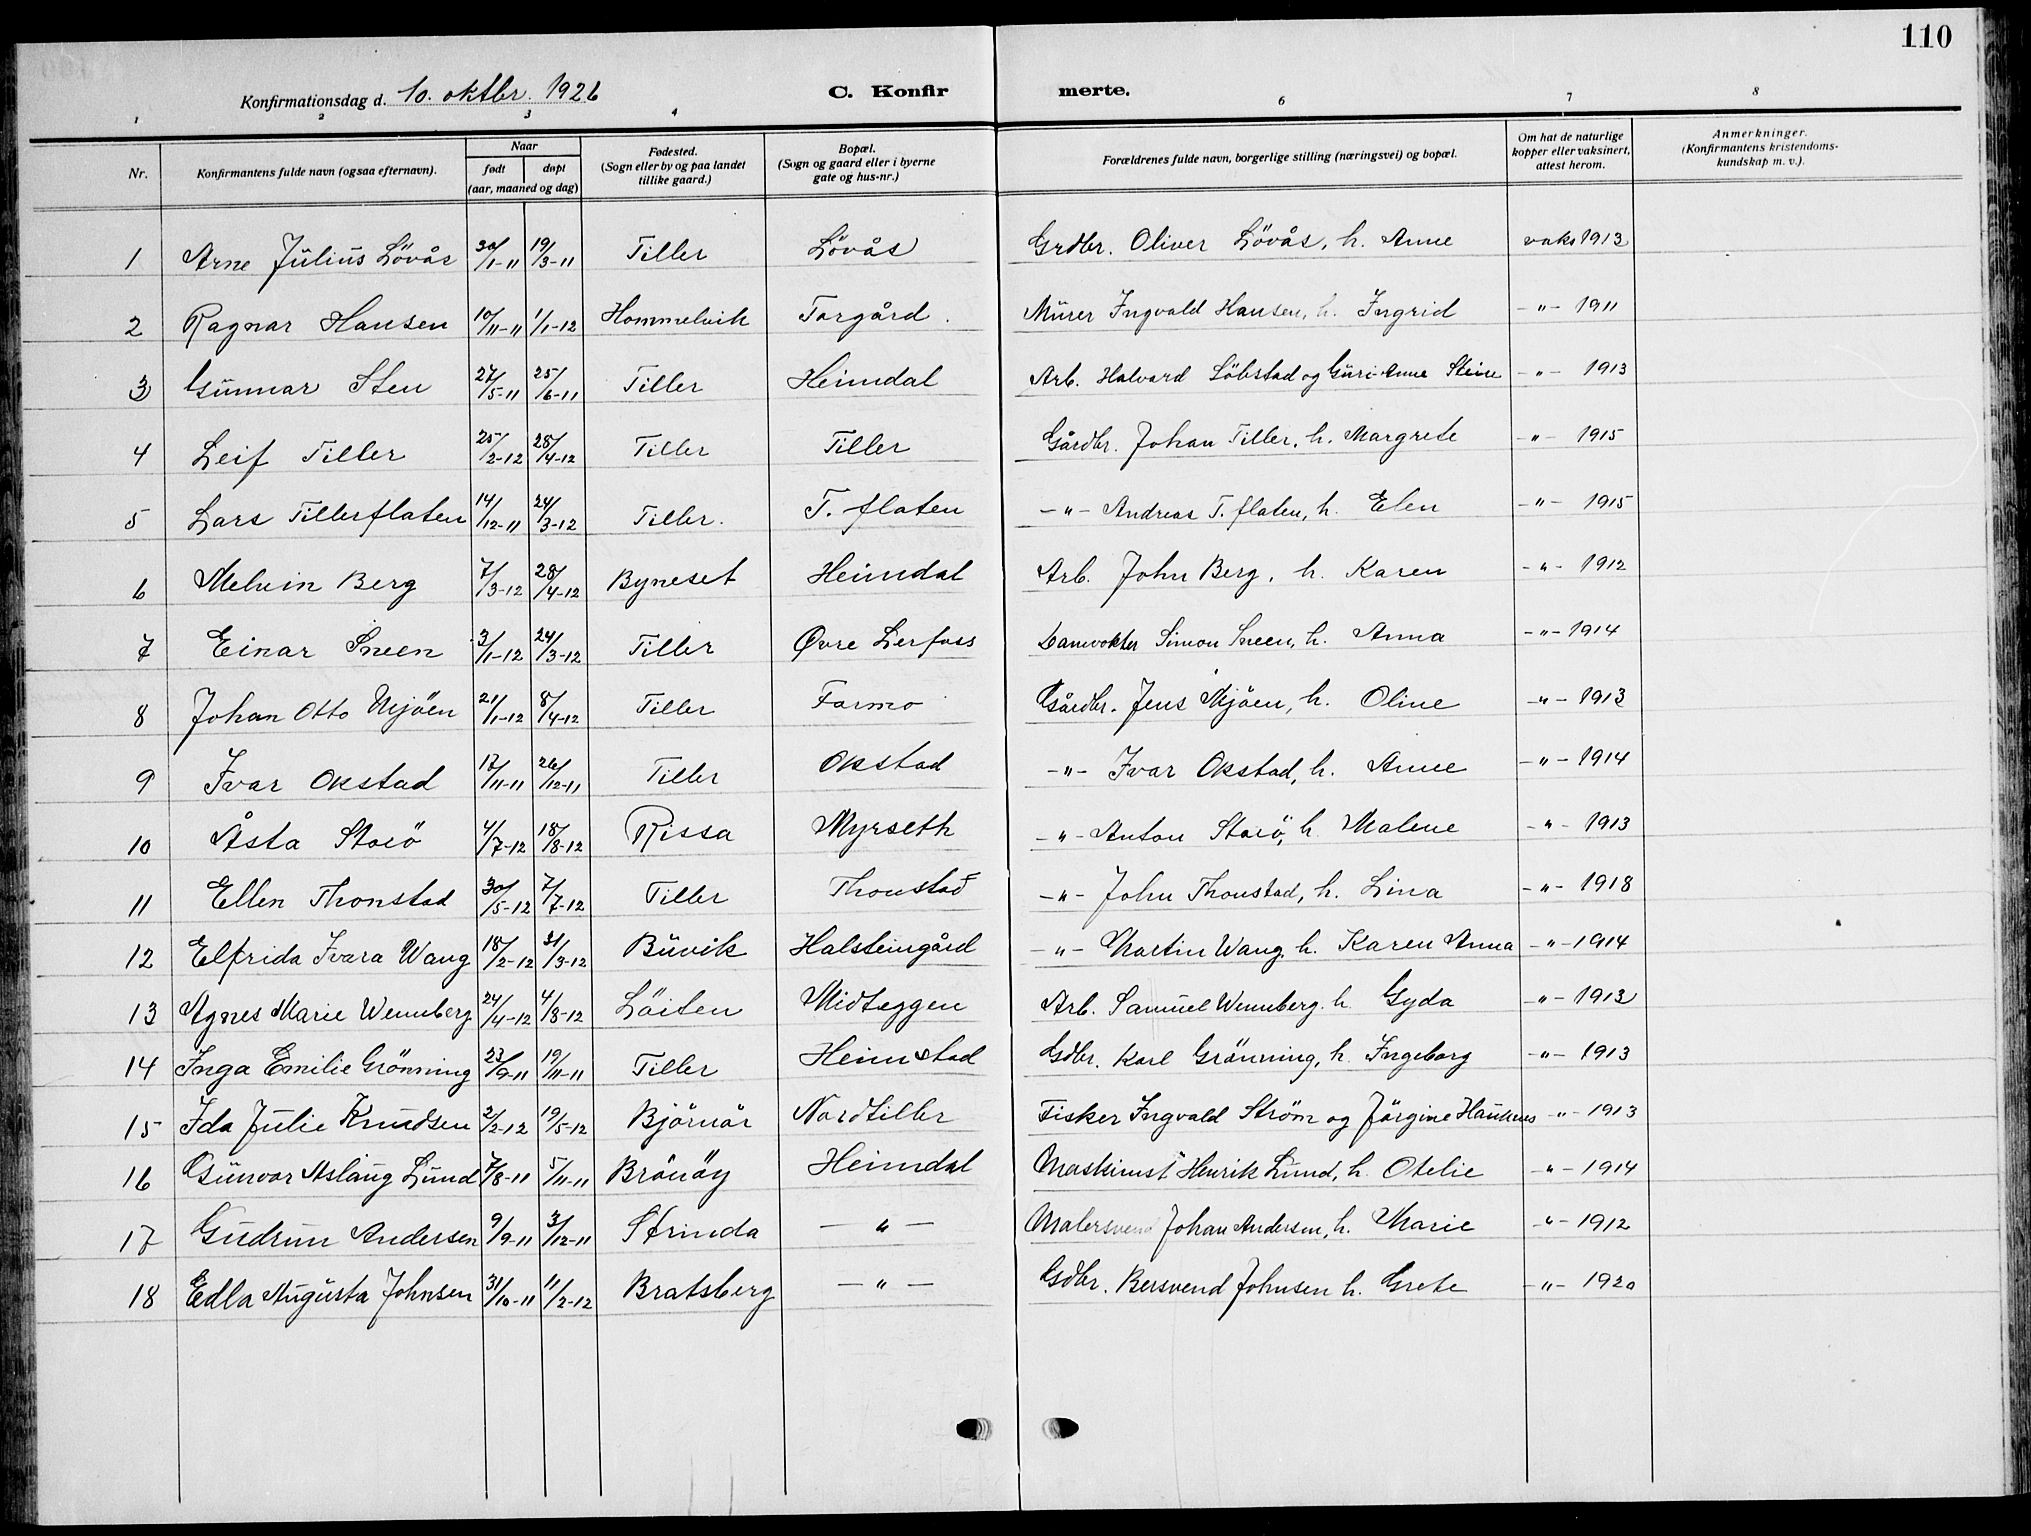 110
Konfirmationsdag d. 10. oktbr. 1926 C. Konfir merte.
1 2 3 4 6 7 8
Nr. Konfirmantens fulde navn (ogsaa efternavn). Naar født døpt (aar, maaned og dag) Fødested. (Sogn eller by og paa landet tillike gaard.) Bopæl. (Sogn og gaard eller i byerne gate og hus-nr.) Forældrenes fulde navn, borgerlige stilling (næringsvei) og bopæl. Om hat de naturlige kopper eller vaksinert, attest herom. Anmerkninger. (Konfirmantens kristendoms-kundskap m. v.).
1 Arne Julius Lövås 30/1-11 19/3-11 Tiller Lövås Grdbr. Oliver Lövås, h. Anne vaks 1913
2 Ragnar Hansen 10/11-11 1/1-12 Hommelvik Torgård. Murer Ingvald Hansen, h. Ingrid -"- 1911
3 Gunnar Sten 27/5-11 25/6-11 Tiller Heimdal Arb. Halvard Löbstad og Guri Anne Steine -"- 1913
4 Leif Tiller 25/2-12 28/4-12 Tiller Tiller Gårdbr. Johan Tiller, h. Margrete -"- 1915
5 Lars Tillerflaten 14/12-11 24/3-12 Tiller. T. flaten -"- Andreas T. flaten, h. Elen -"- 1915
6 Melvin Berg 7/3-12 28/4-12 Byneset Heimdal Arb. John Berg, h. Karen -"- 1912
7 Einar Sneen 3/1-12 24/3-12 Tiller Øvre Lerfoss Damvokter Simon Sneen, h. Anna -"- 1914
8 Johan Otto Mjöen 21/1-12 8/4-12 Tiller Formo Gårdbr. Jens Mjöen, h. Oline -"- 1913
9 Ivar Okstad 17/11-11 26/12-11 Tiller Okstad -"- Ivar Okstad, h. Anne -"- 1914
10 Åsta Storö 4/7-12 18/8-12 Rissa Myrseth -"- Anton Storö, h. Malene -"- 1913
11 Ellen Thonstad 30/5-12 7/7-12 Tiller Thonstad -"- John Thonstad, h. Lina -"- 1918
12 Elfrida Ivara Wang 18/2-12 31/3-12 Buvik Halsteingård -"- Martin Wang h. Karen Anna -"- 1914
13 Agnes Marie Wennberg 24/4-12 4/8-12 Löiten Midteggen Arb. Samuel Wennberg. h Gyda -"- 1913
14 Inga Emilie Grönning 23/9-11 19/11-11 Tiller Heimstad Gdbr. Karl Grönning, h. Ingeborg -"- 1913
15 Ida Julie Knudsen 2/2-12 19/5-12 Björnör Nordtiller Fisker Ingvald Strøm og Jörgine Haukenes -"- 1913
16 Gunvor Aslaug Lund 7/8-11 5/11-11 Brönöy Heimdal Maskinist Henrik Lund, h. Otelie -"- 1914
17 Gudrun Andersen 9/9-11 3/12-11 Strinda -"- Malersvend Johan Andersen, h. Marie -"- 1912
18 Edla Augusta Johnsen 31/10-11 11/2-12 Bratsberg -"- Gdbr. Bersvend Johnsen h. Grete -"- 1920